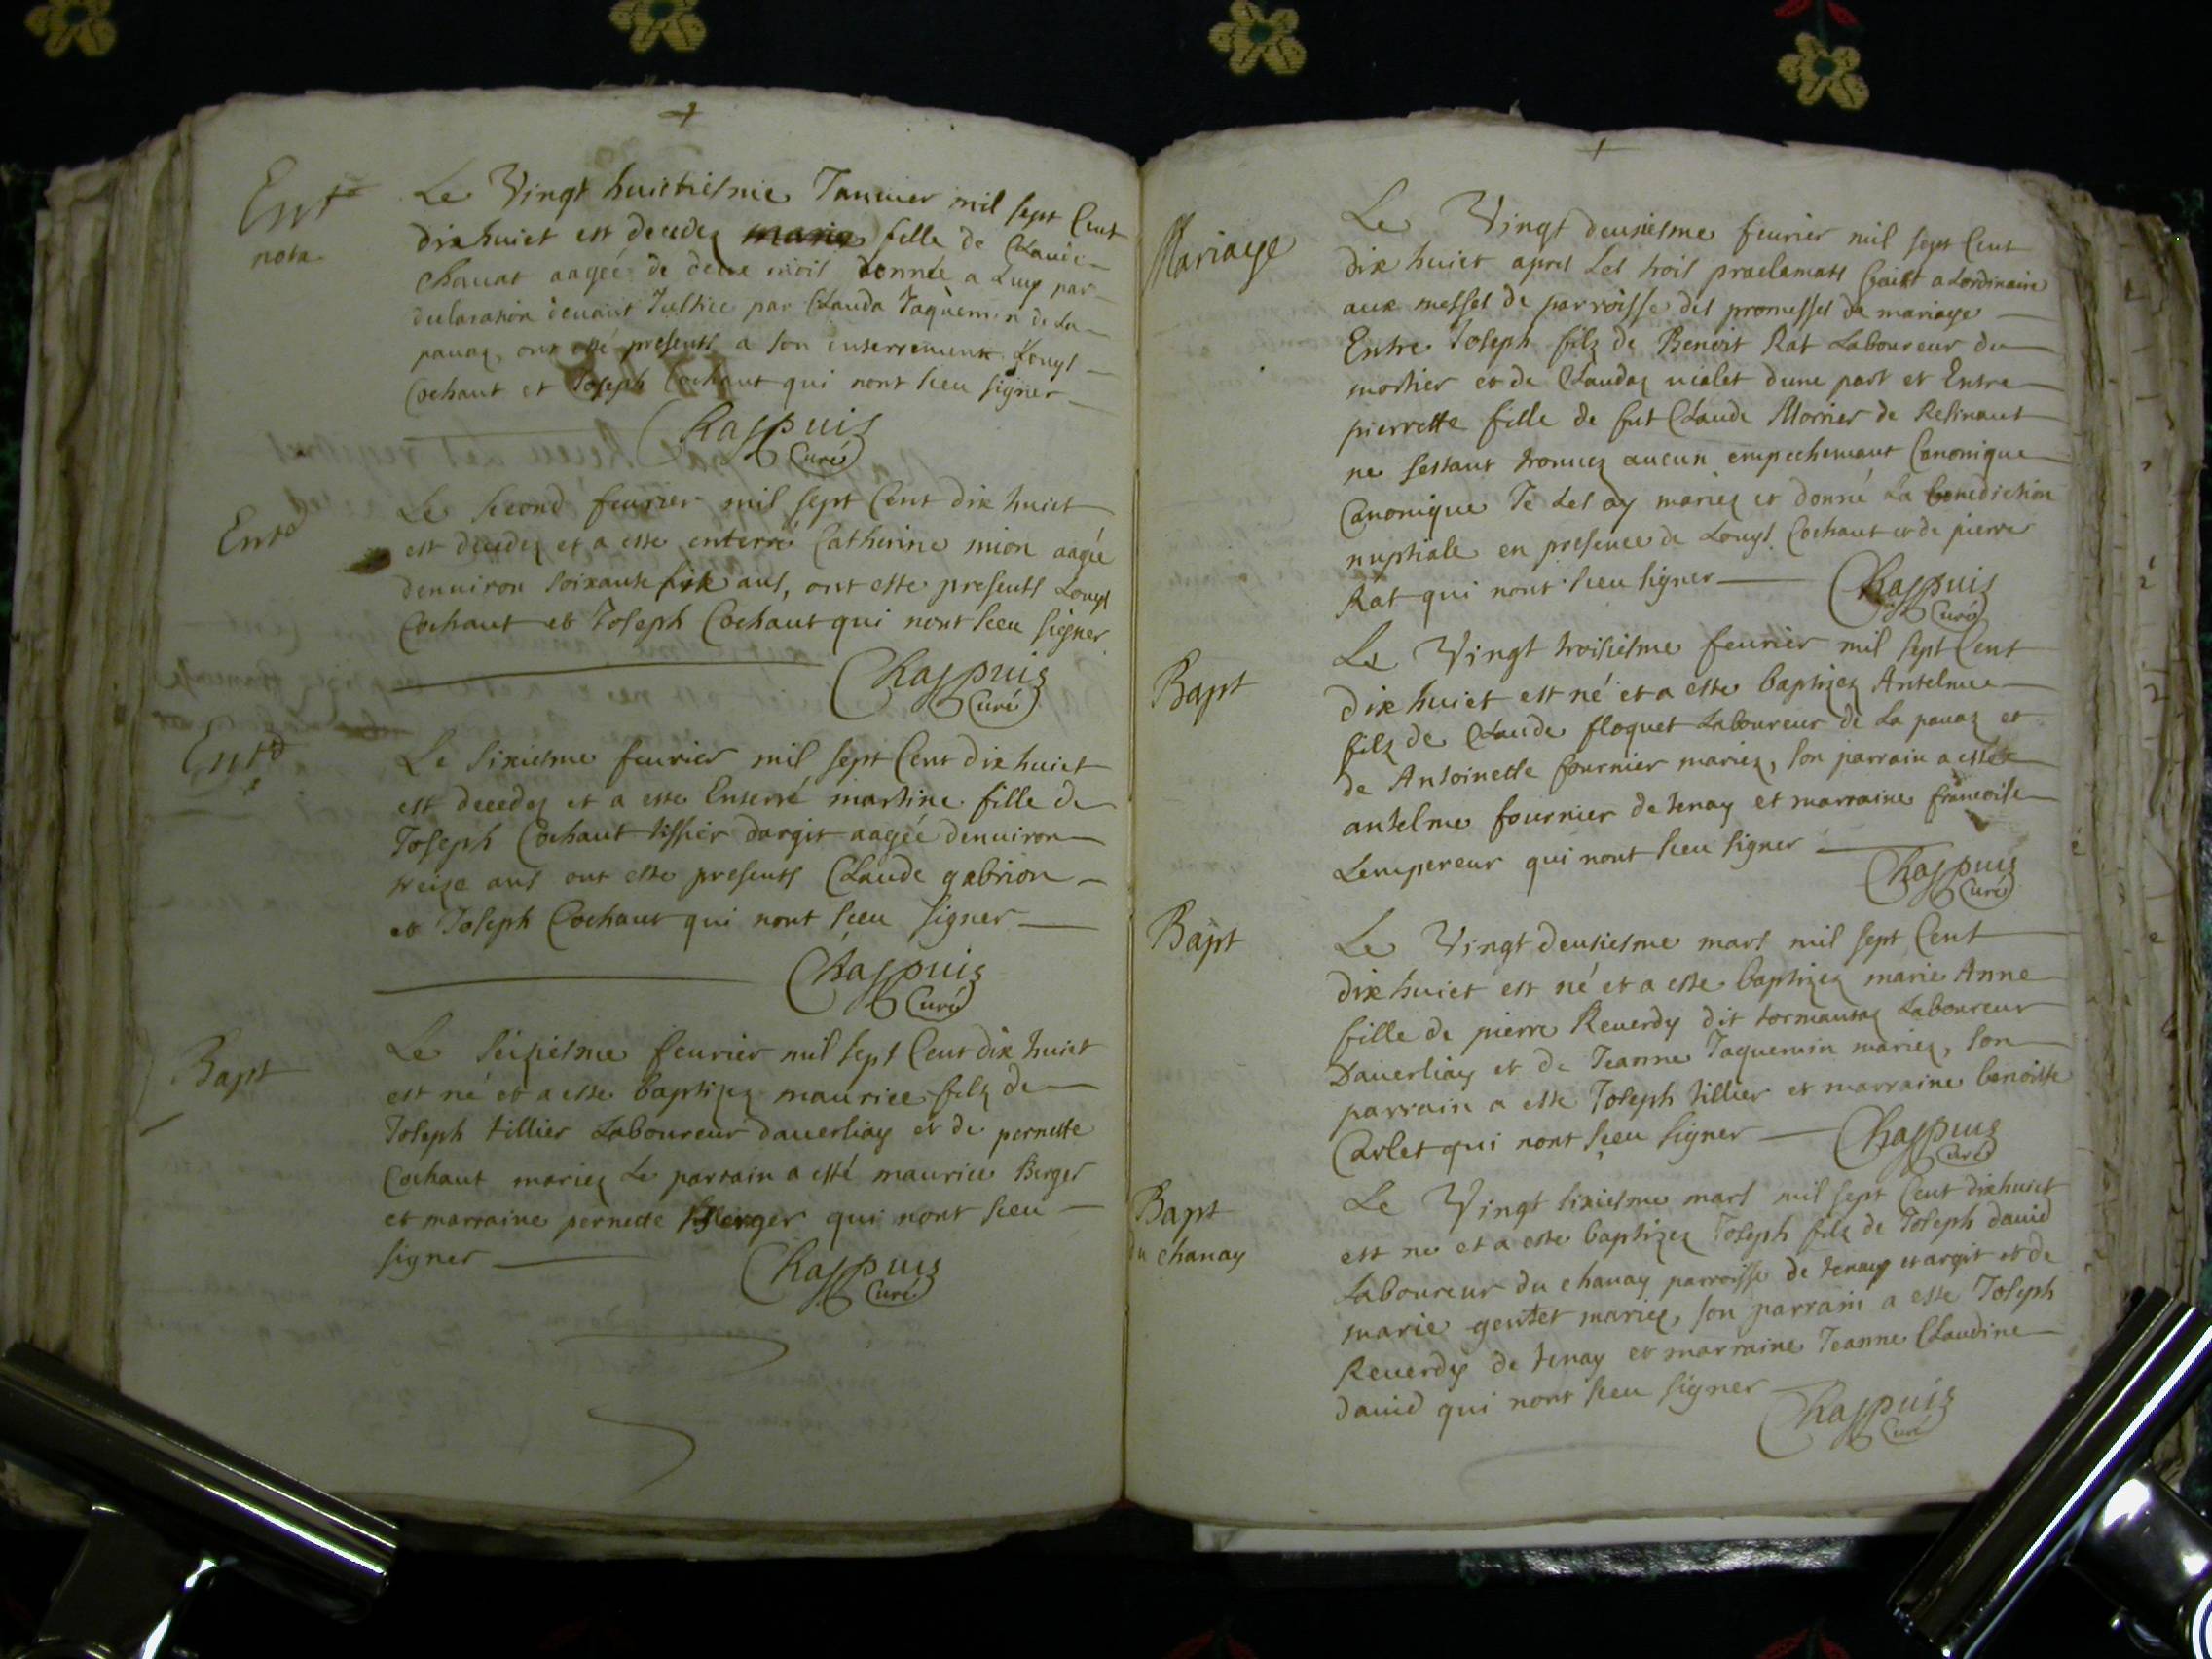 Entᵉ
nota
Le Vingt huictiesme Januier mil sept Cent
dixhuict est decedez marie fille de Claude
Chauat aagée de deux mois donnée a Luy par
declaration deuant Justice par Clauda Jaquemin de La
pauaz, ont esté presents a son enterrement Louys
Cochaut et Joseph Cochaut qui nont sceu signer
Chappuis
Curé
Entᵈ
Le second feurier mil sept Cent dix huict
est decedez et a esté enterré Catherine mion aagée
denuiron soixante six ans, ont esté presents Louys
Cochaut et Joseph Cochaut qui nont sceu signer
Chappuis
Curé
Entᵈ
Le sixiesme feurier mil sept Cent dix huict
est decedez et a esté Enterré martine fille de
Joseph Cochaut tissier dargit aagée denuiron
treize ans ont esté presents Claude gabrion
et Joseph Cochaut qui nont sceu signer
Chappuis
Curé
Bapt
Le seiziesme feurier mil sept Cent dix huict
est né et a esté baptizez maurice filz de
Joseph tillier Laboureur dauerliay et de pernette
Cochaut mariez Le parrain a esté maurice Berger
et marraine pernette Berger qui nont sceu
signer
Chappuis
Curé
Mariage
Le Vingt deuxiesme feurier mil sept Cent
dix huict apres Les trois proclamats faits a Lordinaire
aux messes de parroisse des promesses de mariage
Entre Joseph filz de Benoit Rat Laboureur du
mortier et de Claudaz uialet dune part et Entre
pierrette fille de fut Claude Morrier de Resinaut
ne sestant trouuez aucun empechemant Canonique
Canonique Je Les ay mariez et donné La benediction
nuptiale en presence de Louys Cochaut et de pierre
Rat qui nont sceu signer
Chappuis
Curé
Bapt
Le Vingt troisiesme feurier mil sept Cent
dix huict est né et a esté baptizez Antelme
filz de Claude floquet Laboureur de La pauaz et
de Antoinette fournier mariez, son parrain a esté
antelme fournier de tenay et marraine francoise
Lempereur qui nont sceu signer
Chappuis
Curé
Bapt
Le Vingt deusiesme mars mil sept Cent
dix huict est né et a esté baptizez marie Anne
fille de pierre Reuerdy dit tormantaz Laboureur
Dauerliay et de Jeanne Jaquemin mariez, son
parrain a esté Joseph tillier et marraine benoiste
Carlet qui nont sceu signer
Chappuis
Curé
Bapt
du chanay
Le Vingt sixiesme mars mil sept Cent dixhuict
est né et a esté baptizez Joseph filz de Joseph dauid
Laboureur du chanay parroisse de tenay et argit et de
marie gentet mariez, son parrain a esté Joseph
Reuerdy de tenay et marraine Jeanne Claudine
dauid qui nont sceu signer
Chappuis
Curé